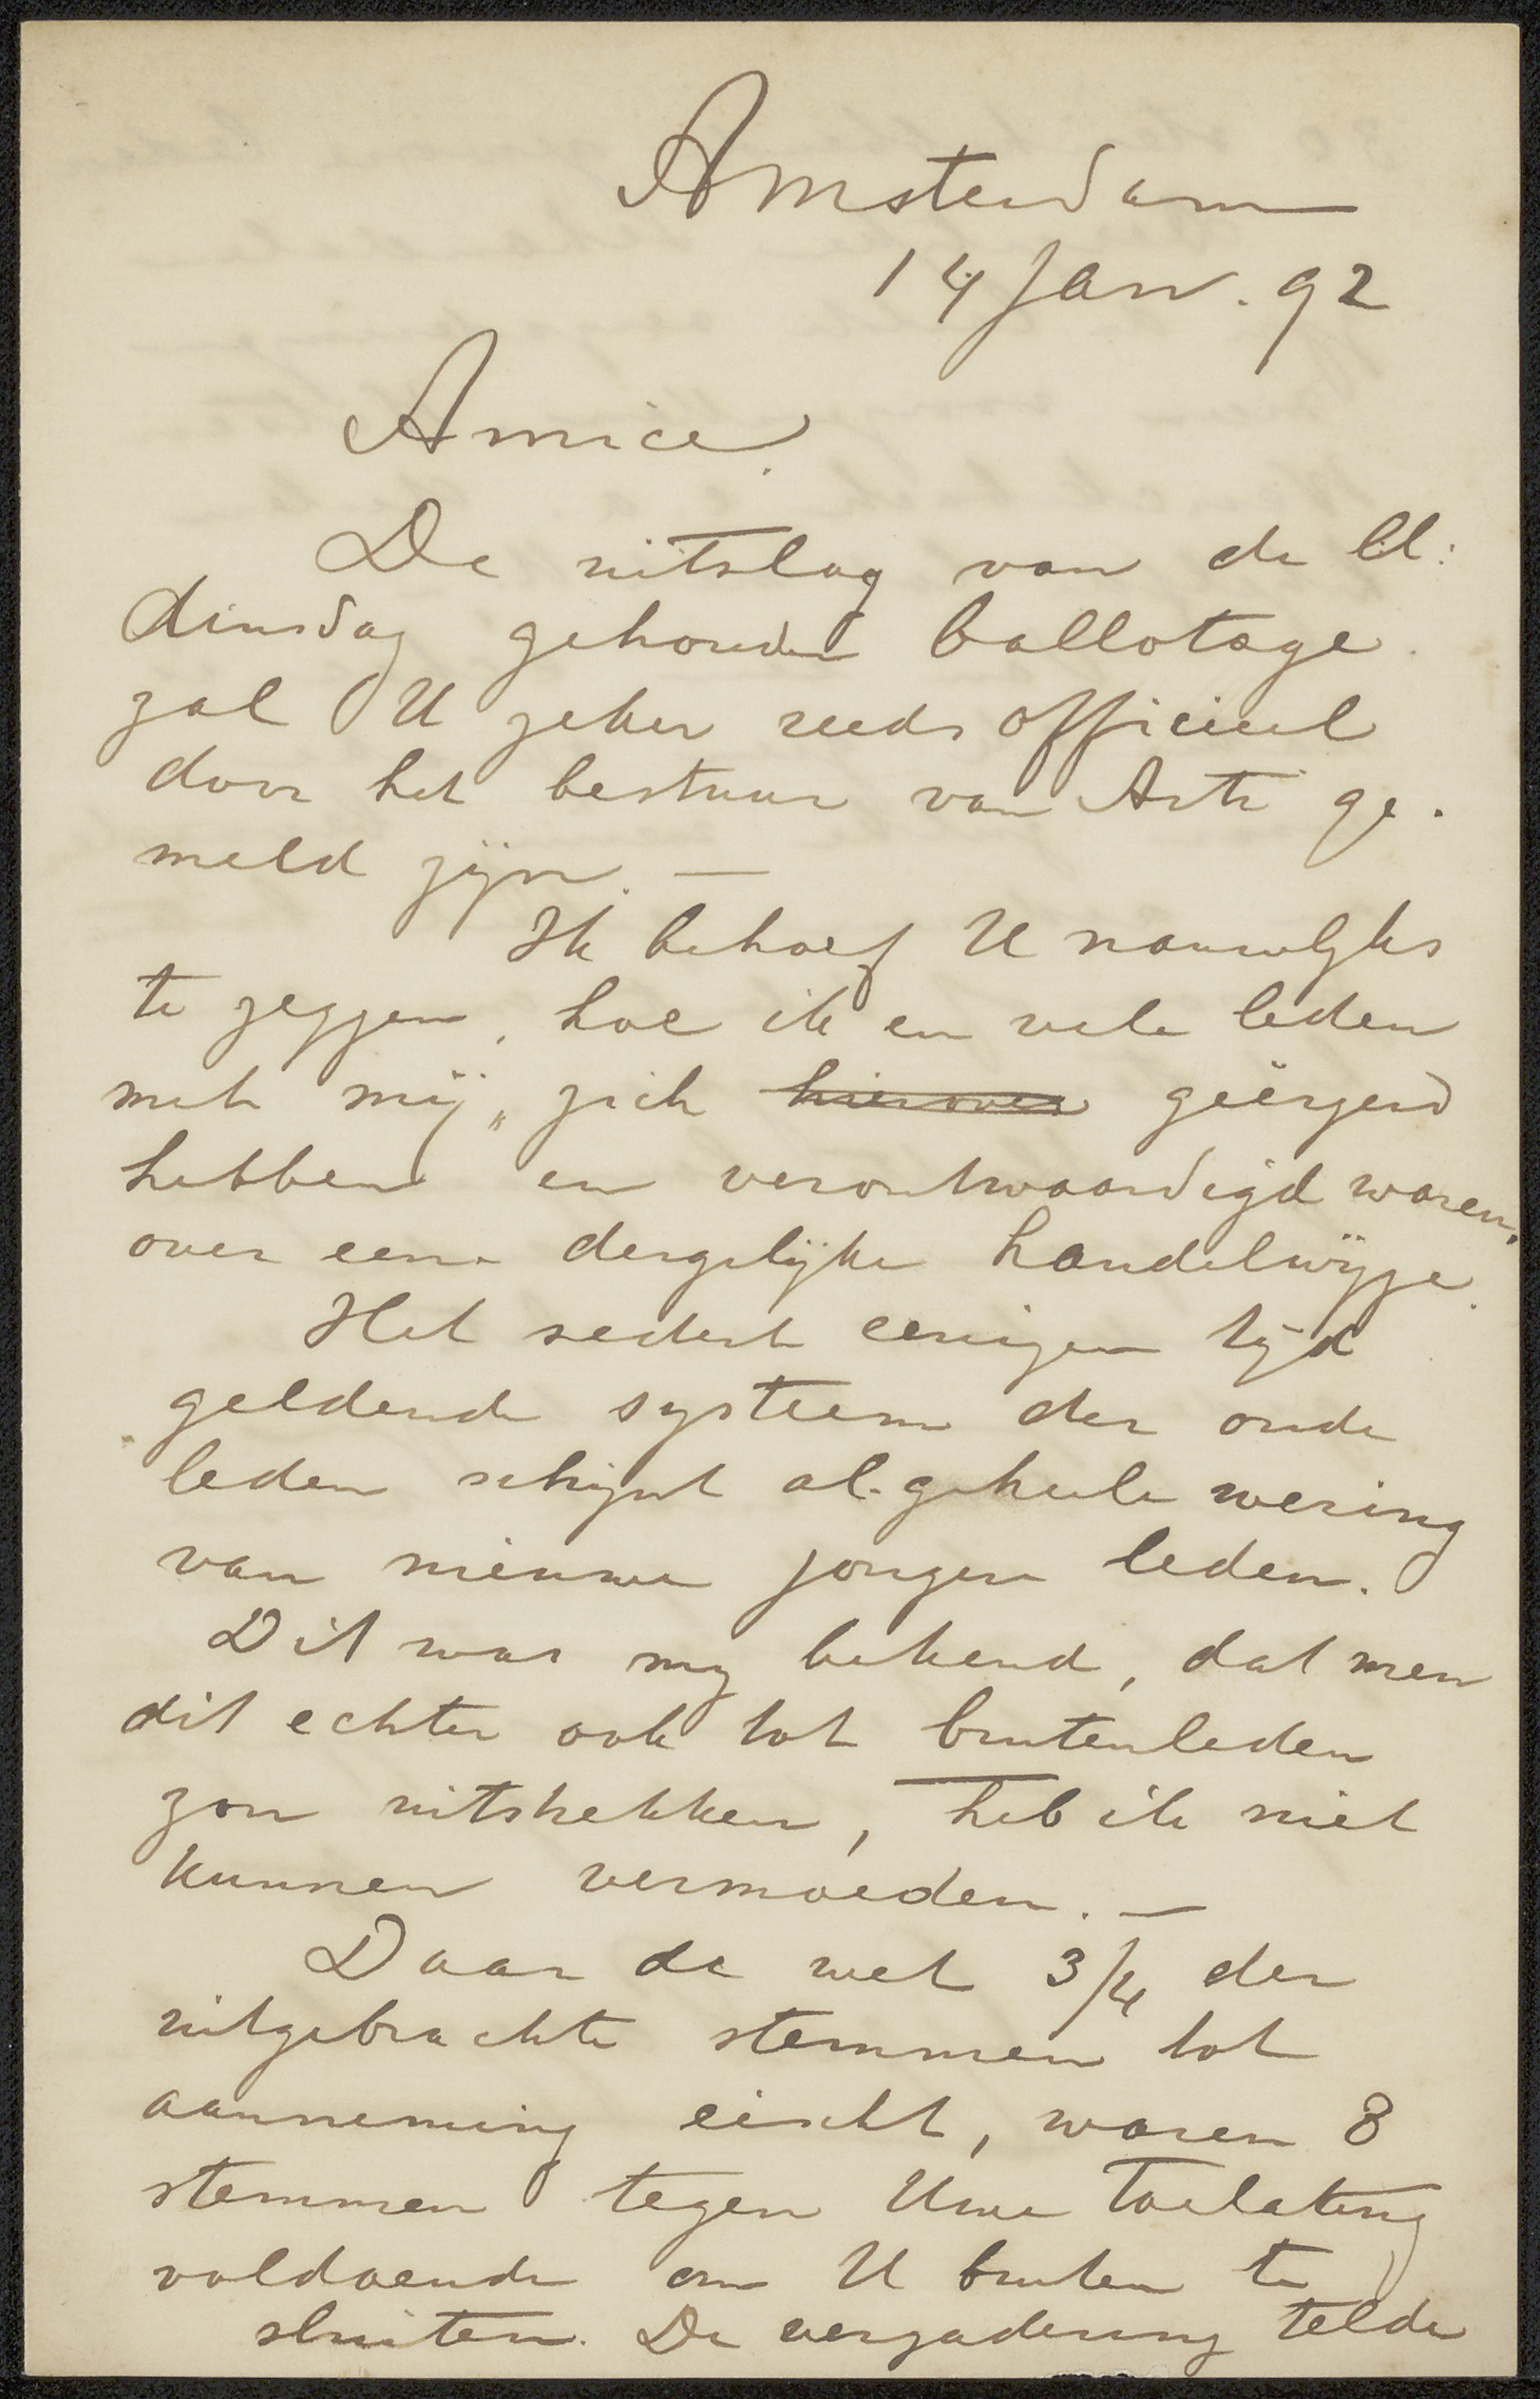 Amsterdam
14 Jan. 92
Amice.
De uitslag van de ll:
dinsdag gehouden ballotage
zal U zeker reeds officieel
door het bestuur van Arti ge-
meld zijn. —
Ik behoef U nauwelyks
te zeggen, hoe ik en vele leden
met mij, zich hierover geërgerd
hebben en verontwaardigd waren,
over eene dergelijke handelwijze.
Het sedert eenigen tijd
geldende systeem der oude
leden schijnt al-geheele wering
van nieuwe jongere leden.
Dit was my bekend, dat men
dit echter ook tot buitenleden
zou uitstrekken, heb ik niet
kunnen vermoeden. —
Daar de wet 3/4 der
uitgebrachte stemmen tot
aanneming eischt, waren 8
stemmen tegen Uwe toelating
voldoende om U buiten te
sluiten. De vergadering telde